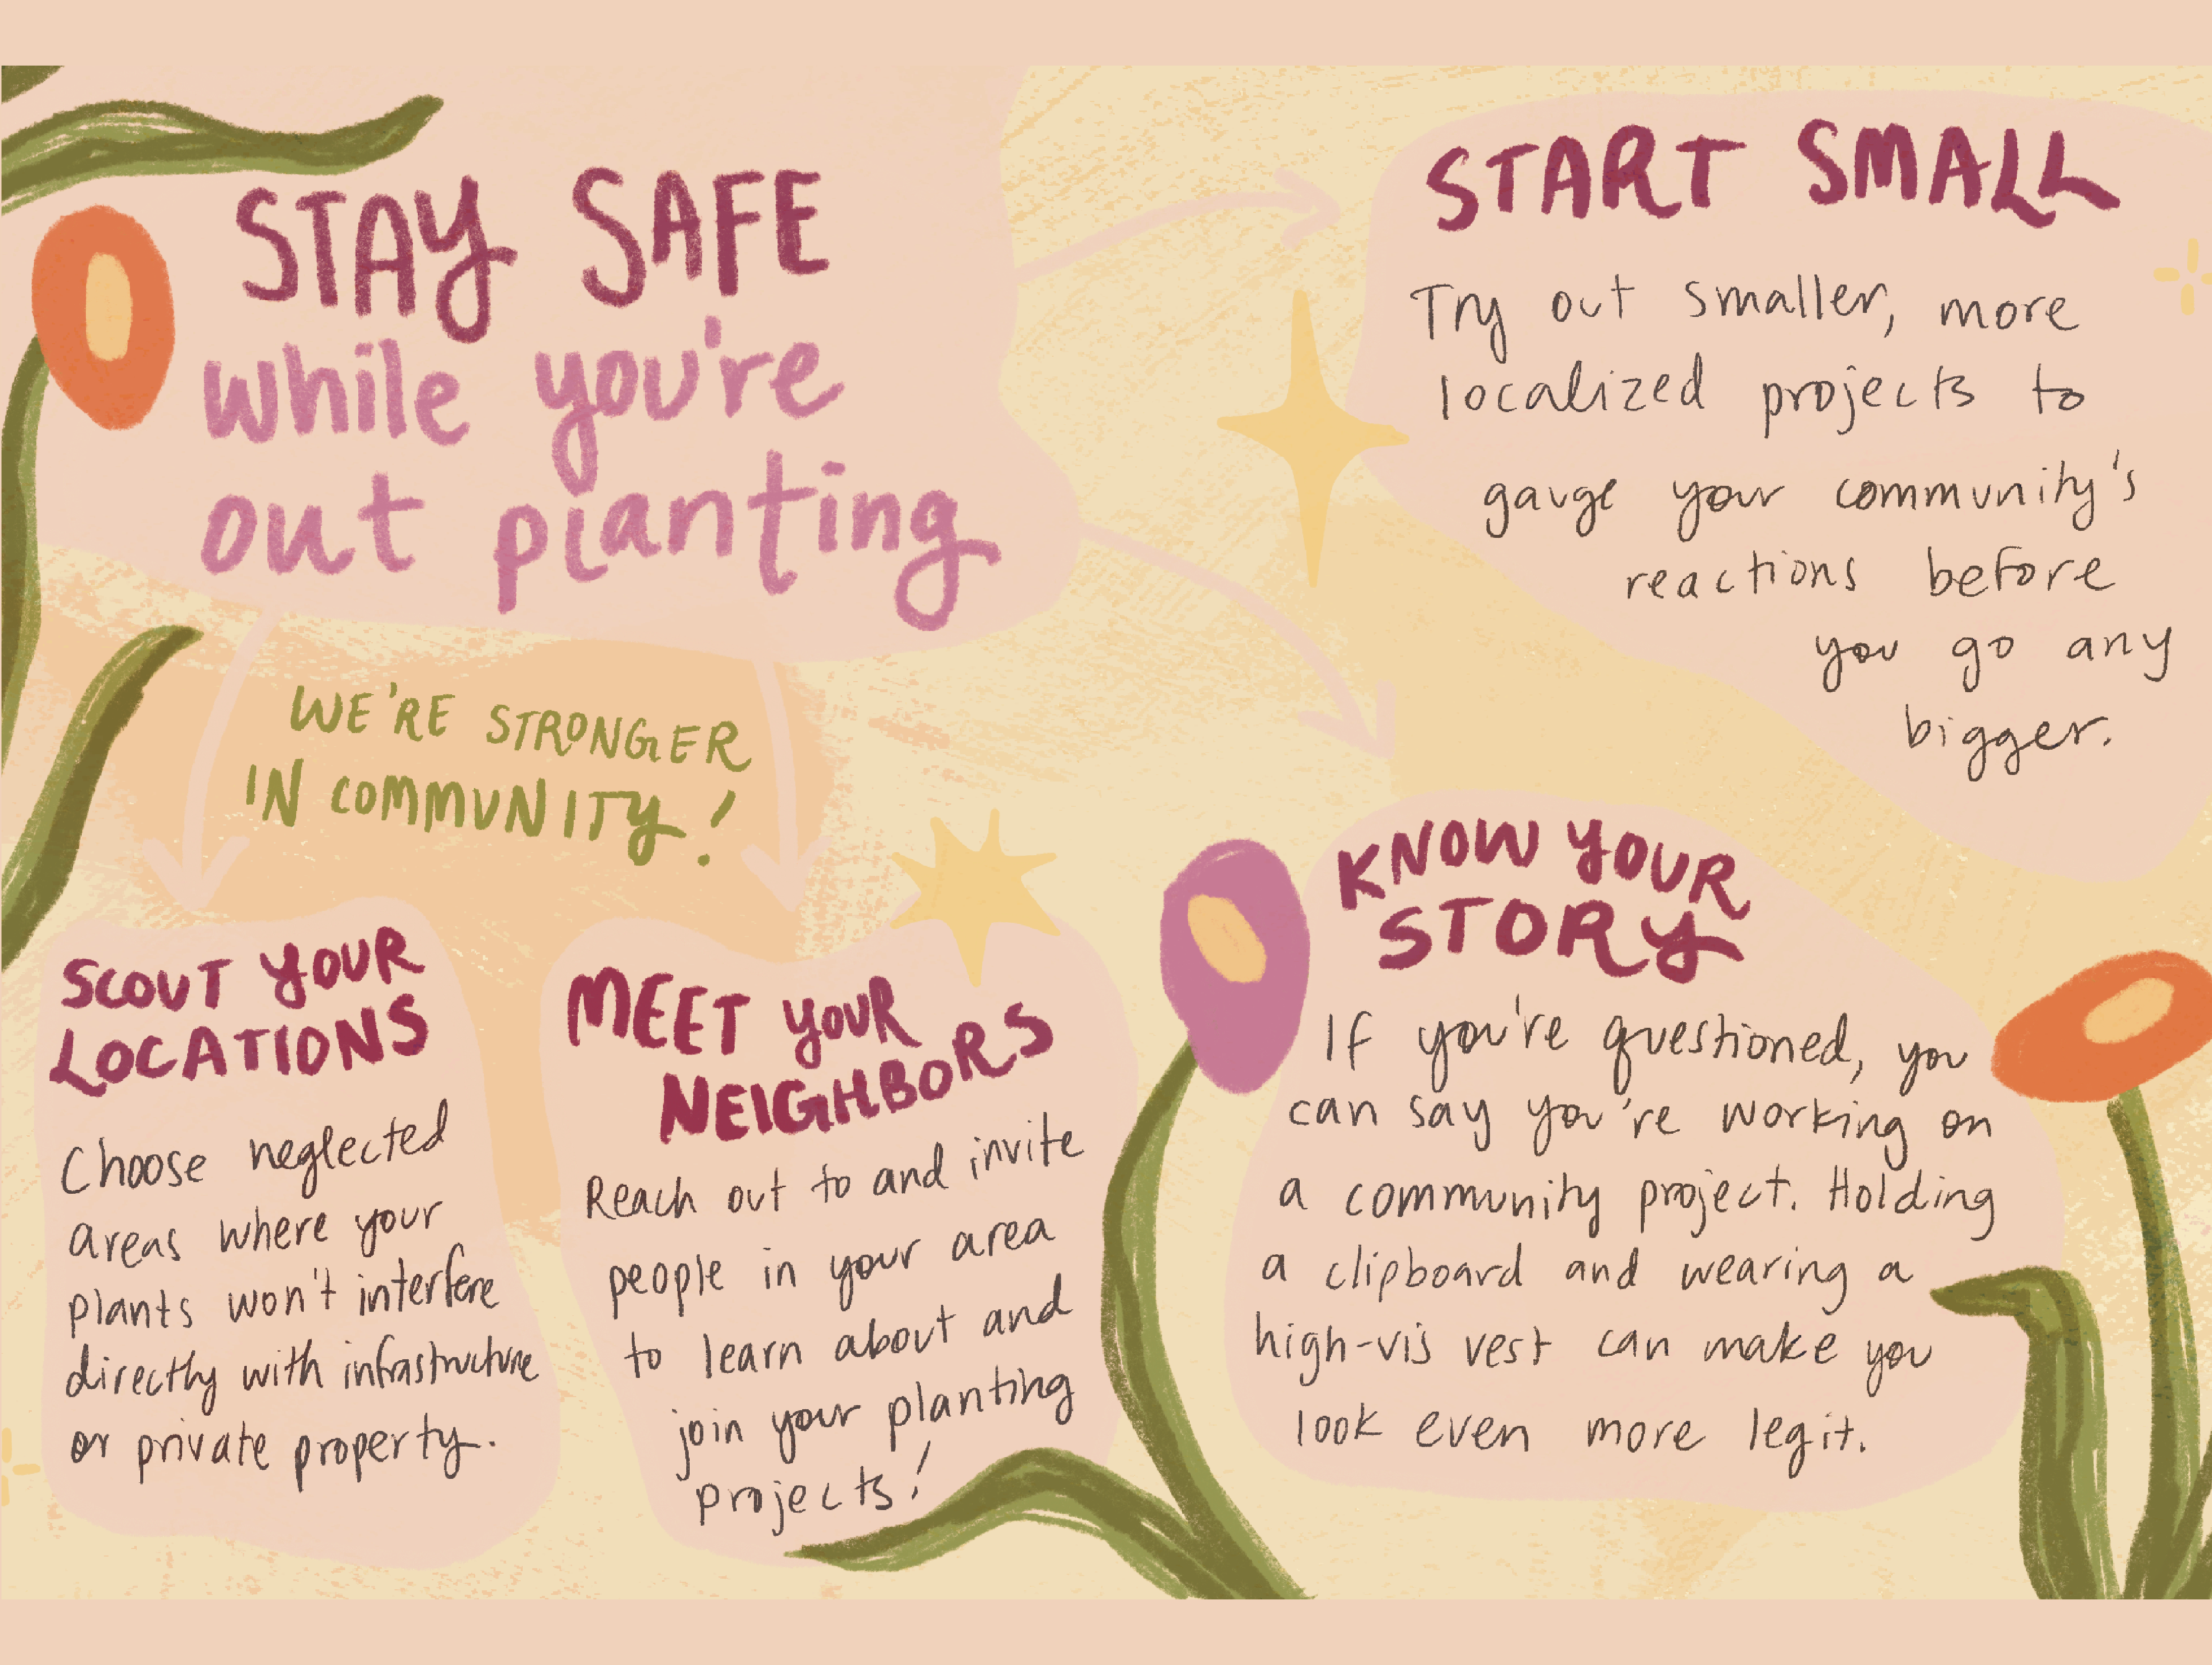 STAY SAFE
while you're
out planting
WE'RE STRONGER
IN COMMUNITY!
START SMALL
Try out smaller, more
localized projects to
gauge your community's
reactions before
you go any
bigger.
SCOUT YOUR
LOCATIONS
Choose neglected
areas where your
plants won't interfere
directly with infrastructure
or private property.
MEET YOUR
NEIGHBORS
Reach out to and invite
people in your area
to learn about and
join your planting
projects!
KNOW YOUR
STORY
If you're questioned, you
can say you're working on
a community project. Holding
a clipboard and wearing a
high-vis vest can make you
look even more legit.